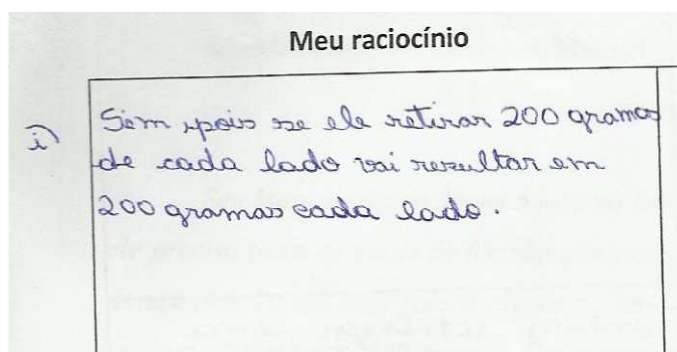 Meu raciocínio
i)
Sim, pois se ele retirar 200 gramas
de cada lado vai rezultar em
200 gramas cada lado.